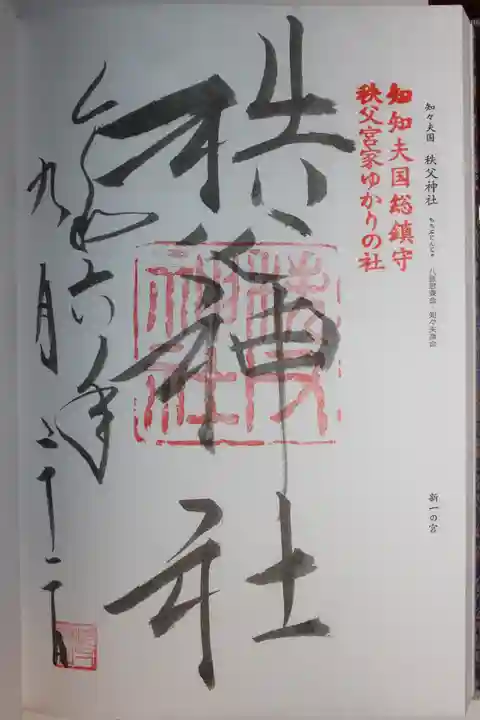 知々夫国 秩父神社 ちちぶじんじゃ 八意思兼命 知々夫彦命
新一の宮
知知夫国総鎮守
秩父宮家ゆかりの社
秩父神社
令和六年
九月二十二日